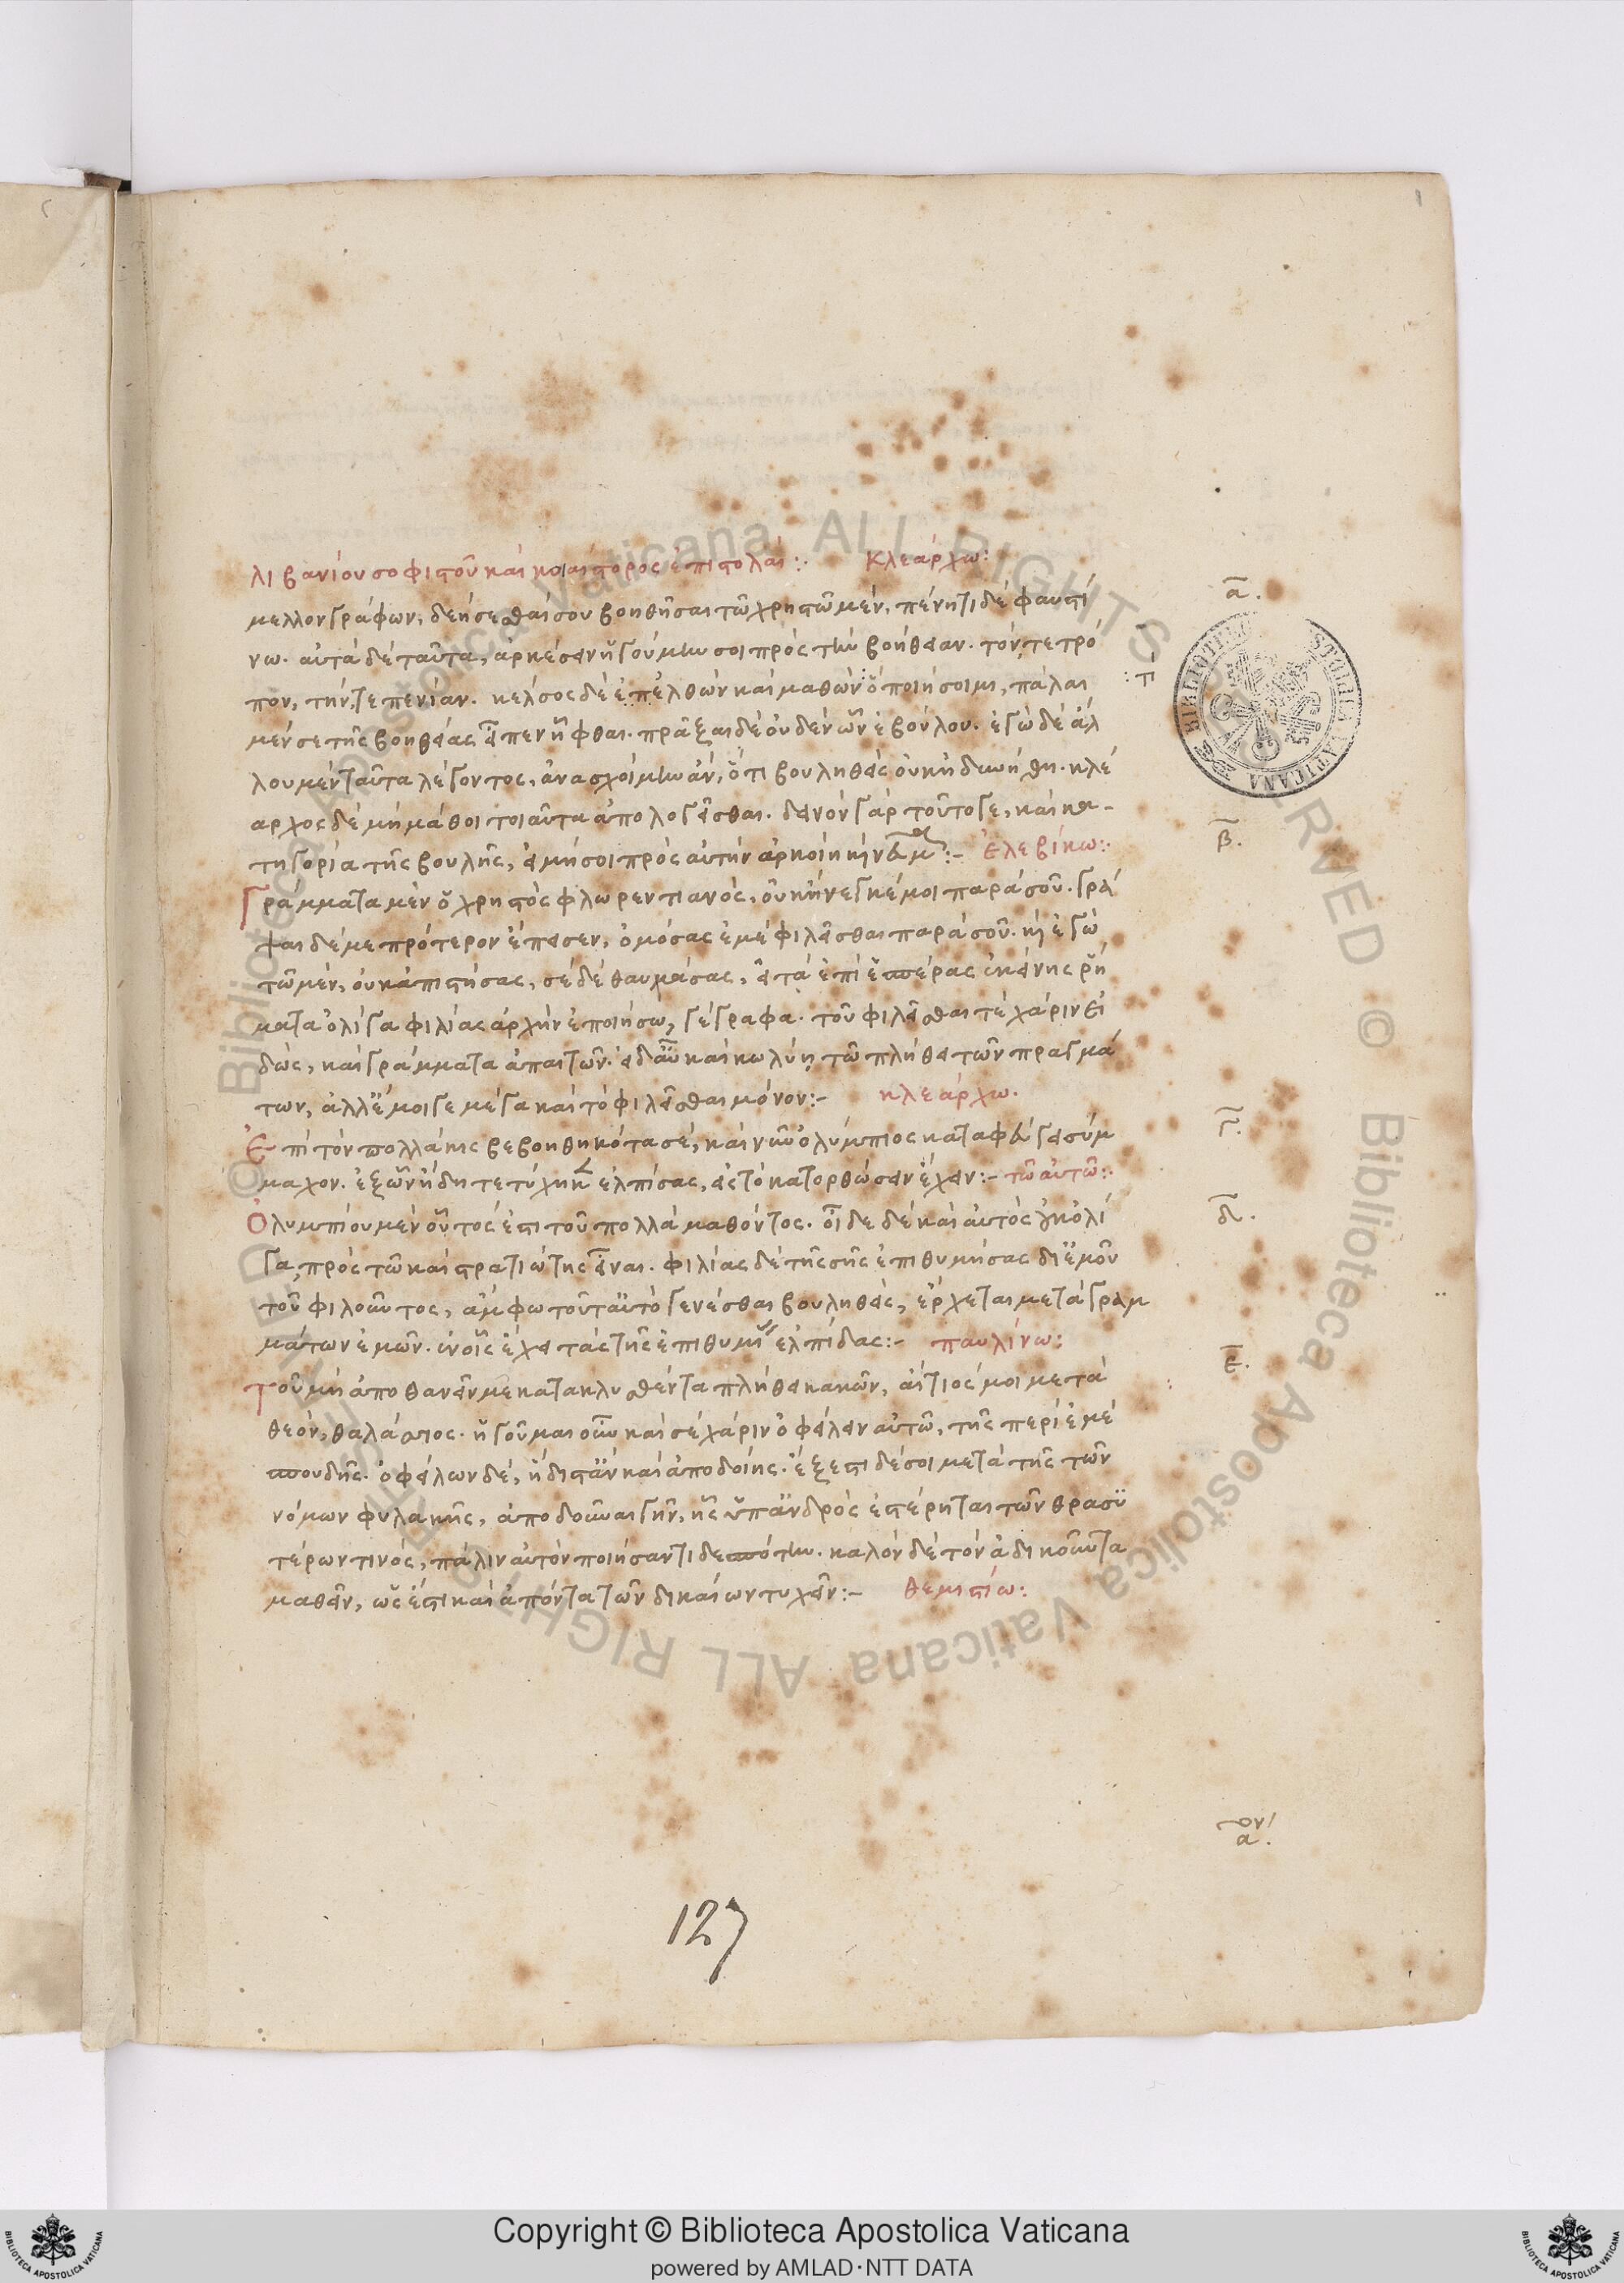 λιβανίου σοφιστοῦ καὶ κοιαίστορος ἐπιστολαί:· Κλεάρχω:
α.
μελλον γράφων, δεήσεσθαί σου βοηθῆσαι τῶ χρηστῶ μέν, πένητι δὲ φαυστί
νω. αὐτὰ δὲ ταῦτα, ἀρκέσειν ἡγούμην σοι πρὸς τὴν βοήθειαν. τόν τε τρό
πον, τήν τε πενίαν. κέλσος δὲ ἐπελθὼν καὶ μαθὼν ὃ ποιήσοιμι, πάλαι
μέν σε τῆς βοηθείας εἶπεν ἦφθαι. πρᾶξαι δὲ οὐδὲν ὧν ἐβούλου. ἐγὼ δὲ ἄλ
λου μὲν ταῦτα λέγοντος, ἀνασχοίμην ἄν, ὅτι βουληθεὶς οὐκ ἠδυνήθη. κλέ
αρχος δὲ μὴ μάθοι τοιαῦτα ἀπολογεῖσθαι. δεινὸν γὰρ τοῦτό γε, καὶ κα-
τηγορία τῆς βουλῆς, εἰ μή σοι πρὸς αὐτὴν ἀρκοίη :- Ἐλεβίκω:·
β.
Γράμματα μὲν ὁ χρηστὸς φλωρεντιανός, οὐκ ἤνεγκέ μοι παρὰ σοῦ. γρά
ψαι δέ με πρότερον ἔπεισεν, ὀμόσας ἐμὲ φιλεῖσθαι παρὰ σοῦ. κἀγὼ
τῶ μέν, οὐκ ἀπιστήσας, σὲ δὲ θαυμάσας, εἰ τὰ ἐπὶ ἑσπέρας ἐκείνης ῥή
ματα ὀλίγα φιλίας ἀρχὴν ἐποιήσω, γέγραφα. τοῦ φιλεῖσθαί τε χάριν εἰ
δώς, καὶ γράμματα ἀπαιτῶν. εἰ δ' αὖ καὶ κωλύη τῶ πλήθει τῶν πραγμά
των, ἀλλ' ἔμοιγε μέγα καὶ τὸ φιλεῖσθαι μόνον:- κλεάρχω.
γ.
Ἐπὶ τὸν πολλάκις βεβοηθηκότα σέ, καὶ νῦν ὀλύμπιος καταφεύγει σύμ
μαχον. ἐξ ὧν ἤδη τετύχηκεν ἐλπίσας, εἰς τὸ κατορθώσειν ἔχειν:- τῶ αὐτῶ:·
δ.
Ὀλυμπίου μὲν οὗτός ἐστι τοῦ πολλὰ μαθόντος. οἶδε δὲ καὶ αὐτὸς οὐκ ὀλί
γα, πρὸς τῶ καὶ στρατιώτης εἶναι. φιλίας δὲ τῆς σῆς ἐπιθυμήσας δι' ἐμοῦ
τοῦ φιλοῦντος, ἄμφω τοῦτ' αὐτὸ γενέσθαι βουληθείς, ἔρχεται μετὰ γραμ
μάτων ἐμῶν. ἐν οἷς ἔχει τὰς τῆς ἐπιθυμίας ἐλπίδας:- παυλίνω:
ε.
Τοῦ μὴ ἀποθανεῖν με κατακλυσθέντα πλήθει κακῶν, αἴτιός μοι μετὰ
θεόν, θαλάσσιος. ἡγοῦμαι οὖν καὶ σὲ χάριν ὀφείλειν αὐτῶ, τῆς περὶ ἐμὲ
σπουδῆς. ὀφείλων δέ, ἥδιστ' ἂν καὶ ἀποδοίης. ἔξεστι δέ σοι μετὰ τῆς τῶν
νόμων φυλακῆς, ἀποδοῦναι γῆν, ἧς ὑπ' ἀνδρὸς ἐστέρηται τῶν θρασυ
τέρων τινός, πάλιν αὐτὸν ποιήσαντι δεσπότην. καλὸν δὲ τὸν ἀδικοῦντα
μαθεῖν, ὡς ἔστι καὶ ἀπόντα τῶν δικαίων τυχεῖν:- θεμιστίω:
127
Copyright © Biblioteca Apostolica Vaticana
powered by AMLAD·NTT DATA